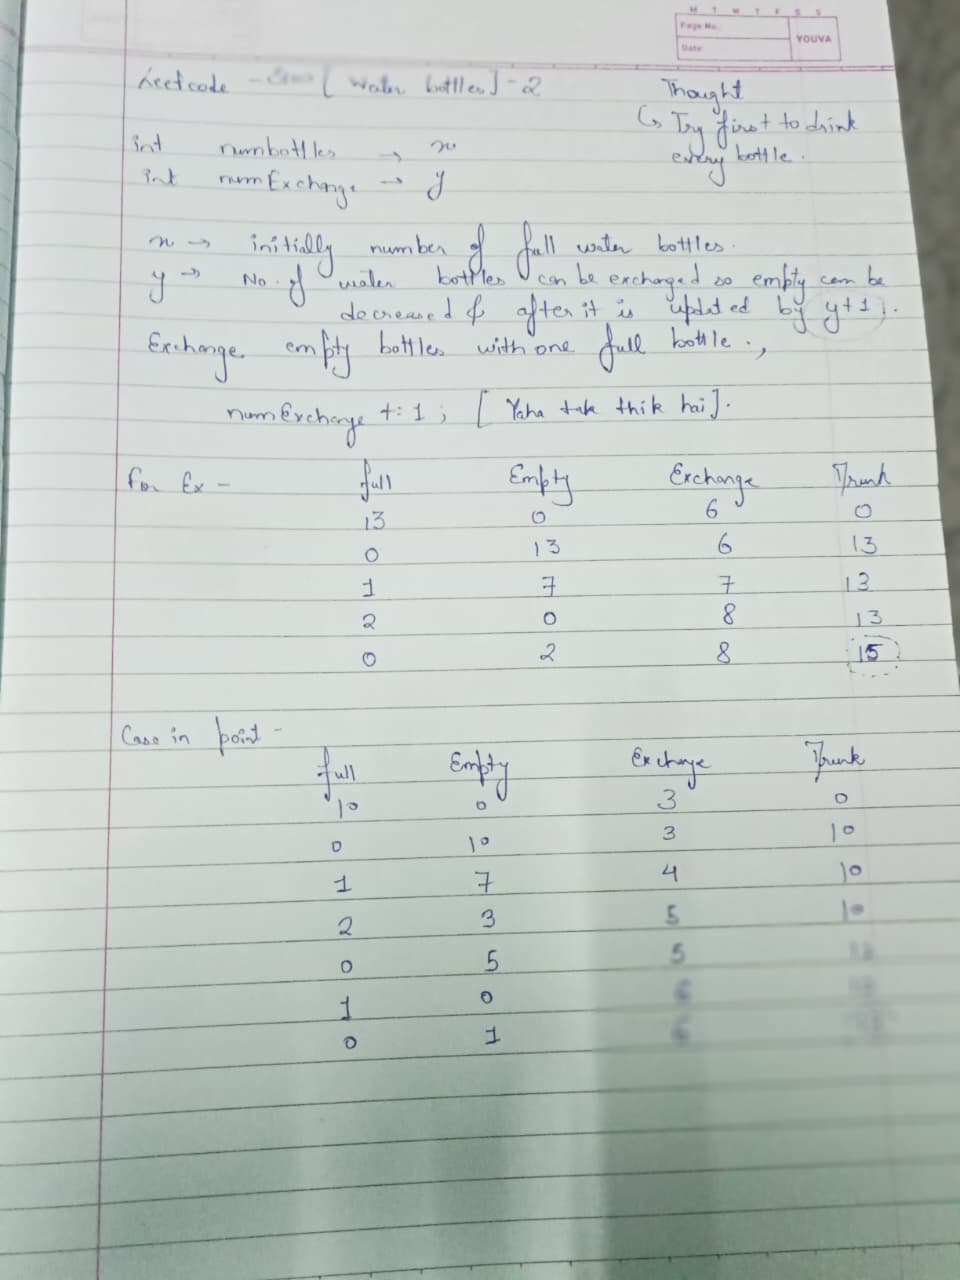 M T W T F S S
Page No.:
Date:
YOUVA
Leetcode - [ Water bottles ] - 2
Thought
↳ Try first to drink
every bottle.
int numbottles → x
int numExchange → y
x → initially number of full water bottles.
y → No. of water bottles can be exchanged so empty can be
decreased & after it is updated by y+1;.
Exchange empty bottles with one full bottle.,
numExchange += 1 ; [ Yaha tak thik hai ].
For Ex - full Empty Exchange Drunk
13 0 6 0
0 13 6 13
1 7 7 13
2 0 8 13
0 2 8 15
Case in point -
full Empty Exchange Drunk
10 0 3 0
0 10 3 10
1 7 4 10
2 3 5 10
0 5 5
1 0
0 1